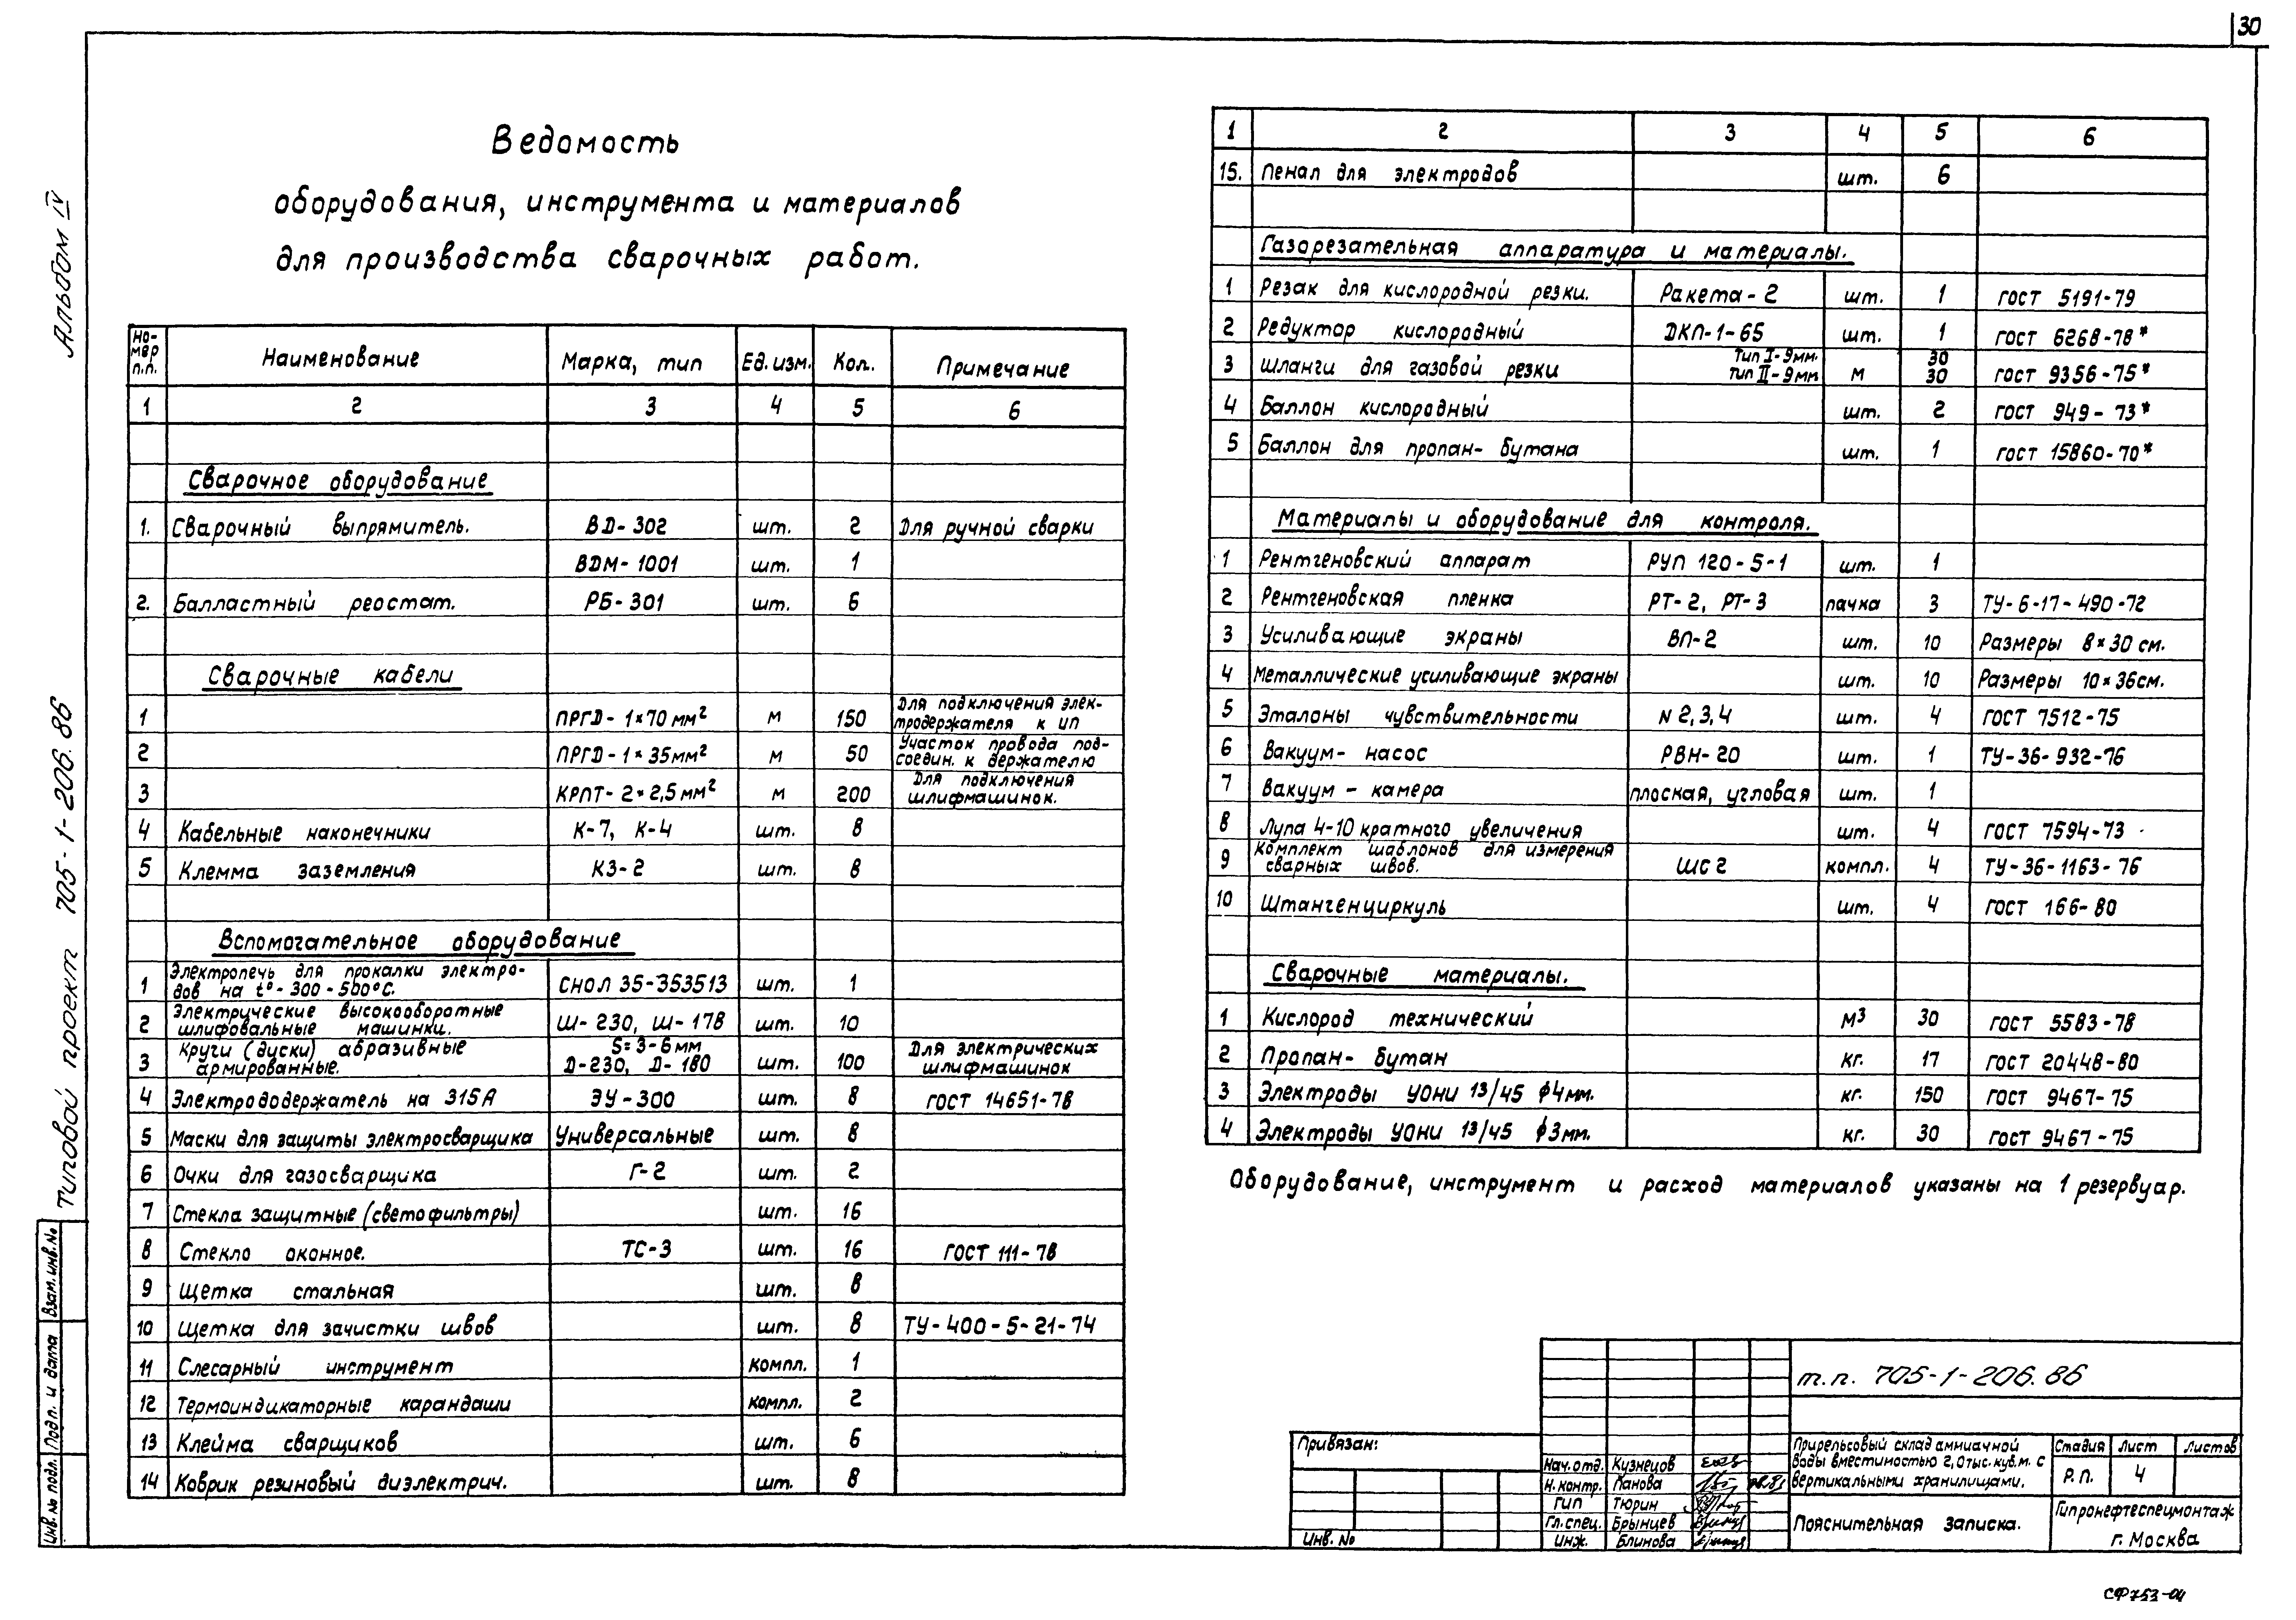 30
Альбом IV
Типовой проект 705-1-206.86
Взам. инв. №
Подп. и дата
Инв. № подл.
Ведомость
оборудования, инструмента и материалов
для производства сварочных работ.
Номер п.п. Наименование Марка, тип Ед. изм. Кол. Примечание
1 2 3 4 5 6
Сварочное оборудование
1. Сварочный выпрямитель. ВД-302 шт. 2 Для ручной сварки
ВДМ-1001 шт. 1
2. Балластный реостат. РБ-301 шт. 6
Сварочные кабели
1 ПРГД-1×70 мм² м 150 Для подключения элек-
тродержателя к ИП
2 ПРГД-1×35 мм² м 50 Участок провода под-
соедин. к держателю
3 КРПТ-2×2,5 мм² м 200 Для подключения
шлифмашинок.
4 Кабельные наконечники К-7, К-4 шт. 8
5 Клемма заземления КЗ-2 шт. 8
Вспомогательное оборудование
1 Электропечь для прокалки электро-
дов на t°-300-500°С. СНОЛ 35-353513 шт. 1
2 Электрические высокооборотные
шлифовальные машинки. Ш-230, Ш-178 шт. 10
3 Круги (диски) абразивные
армированные. S=3-6мм
Д-230, Д-180 шт. 100 Для электрических
шлифмашинок
4 Электрододержатель на 315А ЭУ-300 шт. 8 ГОСТ 14651-78
5 Маски для защиты электросварщика Универсальные шт. 8
6 Очки для газосварщика Г-2 шт. 2
7 Стекла защитные (светофильтры) шт. 16
8 Стекло оконное. ТС-3 шт. 16 ГОСТ 111-78
9 Щетка стальная шт. 8
10 Щетка для зачистки швов шт. 8 ТУ-400-5-21-74
11 Слесарный инструмент компл. 1
12 Термоиндикаторные карандаши компл. 2
13 Клейма сварщиков шт. 6
14 Коврик резиновый диэлектрич. шт. 8
1 2 3 4 5 6
15. Пенал для электродов шт. 6
Газорезательная аппаратура и материалы.
1 Резак для кислородной резки. Ракета-2 шт. 1 ГОСТ 5191-79
2 Редуктор кислородный ДКП-1-65 шт. 1 ГОСТ 6268-78*
3 Шланги для газовой резки Тип I-9мм. 30
Тип II-9мм м 30 ГОСТ 9356-75*
4 Баллон кислородный шт. 2 ГОСТ 949-73*
5 Баллон для пропан-бутана шт. 1 ГОСТ 15860-70*
Материалы и оборудование для контроля.
1 Рентгеновский аппарат РУП 120-5-1 шт. 1
2 Рентгеновская пленка РТ-2, РТ-3 пачка 3 ТУ-6-17-490-72
3 Усиливающие экраны ВП-2 шт. 10 Размеры 8×30 см.
4 Металлические усиливающие экраны шт. 10 Размеры 10×36см.
5 Эталоны чувствительности N 2,3,4 шт. 4 ГОСТ 7512-75
6 Вакуум-насос РВН-20 шт. 1 ТУ-36-932-76
7 Вакуум-камера плоская, угловая шт. 1
8 Лупа 4-10 кратного увеличения шт. 4 ГОСТ 7594-73
9 Комплект шаблонов для измерения
сварных швов. ШС 2 компл. 4 ТУ-36-1163-76
10 Штангенциркуль шт. 4 ГОСТ 166-80
Сварочные материалы.
1 Кислород технический м³ 30 ГОСТ 5583-78
2 Пропан-бутан кг. 17 ГОСТ 20448-80
3 Электроды УОНИ 13/45 ϕ4мм. кг. 150 ГОСТ 9467-75
4 Электроды УОНИ 13/45 ϕ3мм. кг. 30 ГОСТ 9467-75
Оборудование, инструмент и расход материалов указаны на 1 резервуар.
т.п. 705-1-206.86
Привязан:
Инв. №
Нач. отд. Кузнецов
Н. контр. Панова
ГИП Тюрин
Гл. спец. Брынцев
Инж. Блинова
Прирельсовый склад аммиачной
воды вместимостью 2,0 тыс. куб. м. с
вертикальными хранилищами.
Стадия Лист Листов
Р.П. 4
Пояснительная записка.
Гипронефтеспецмонтаж
г. Москва
СФ753-04